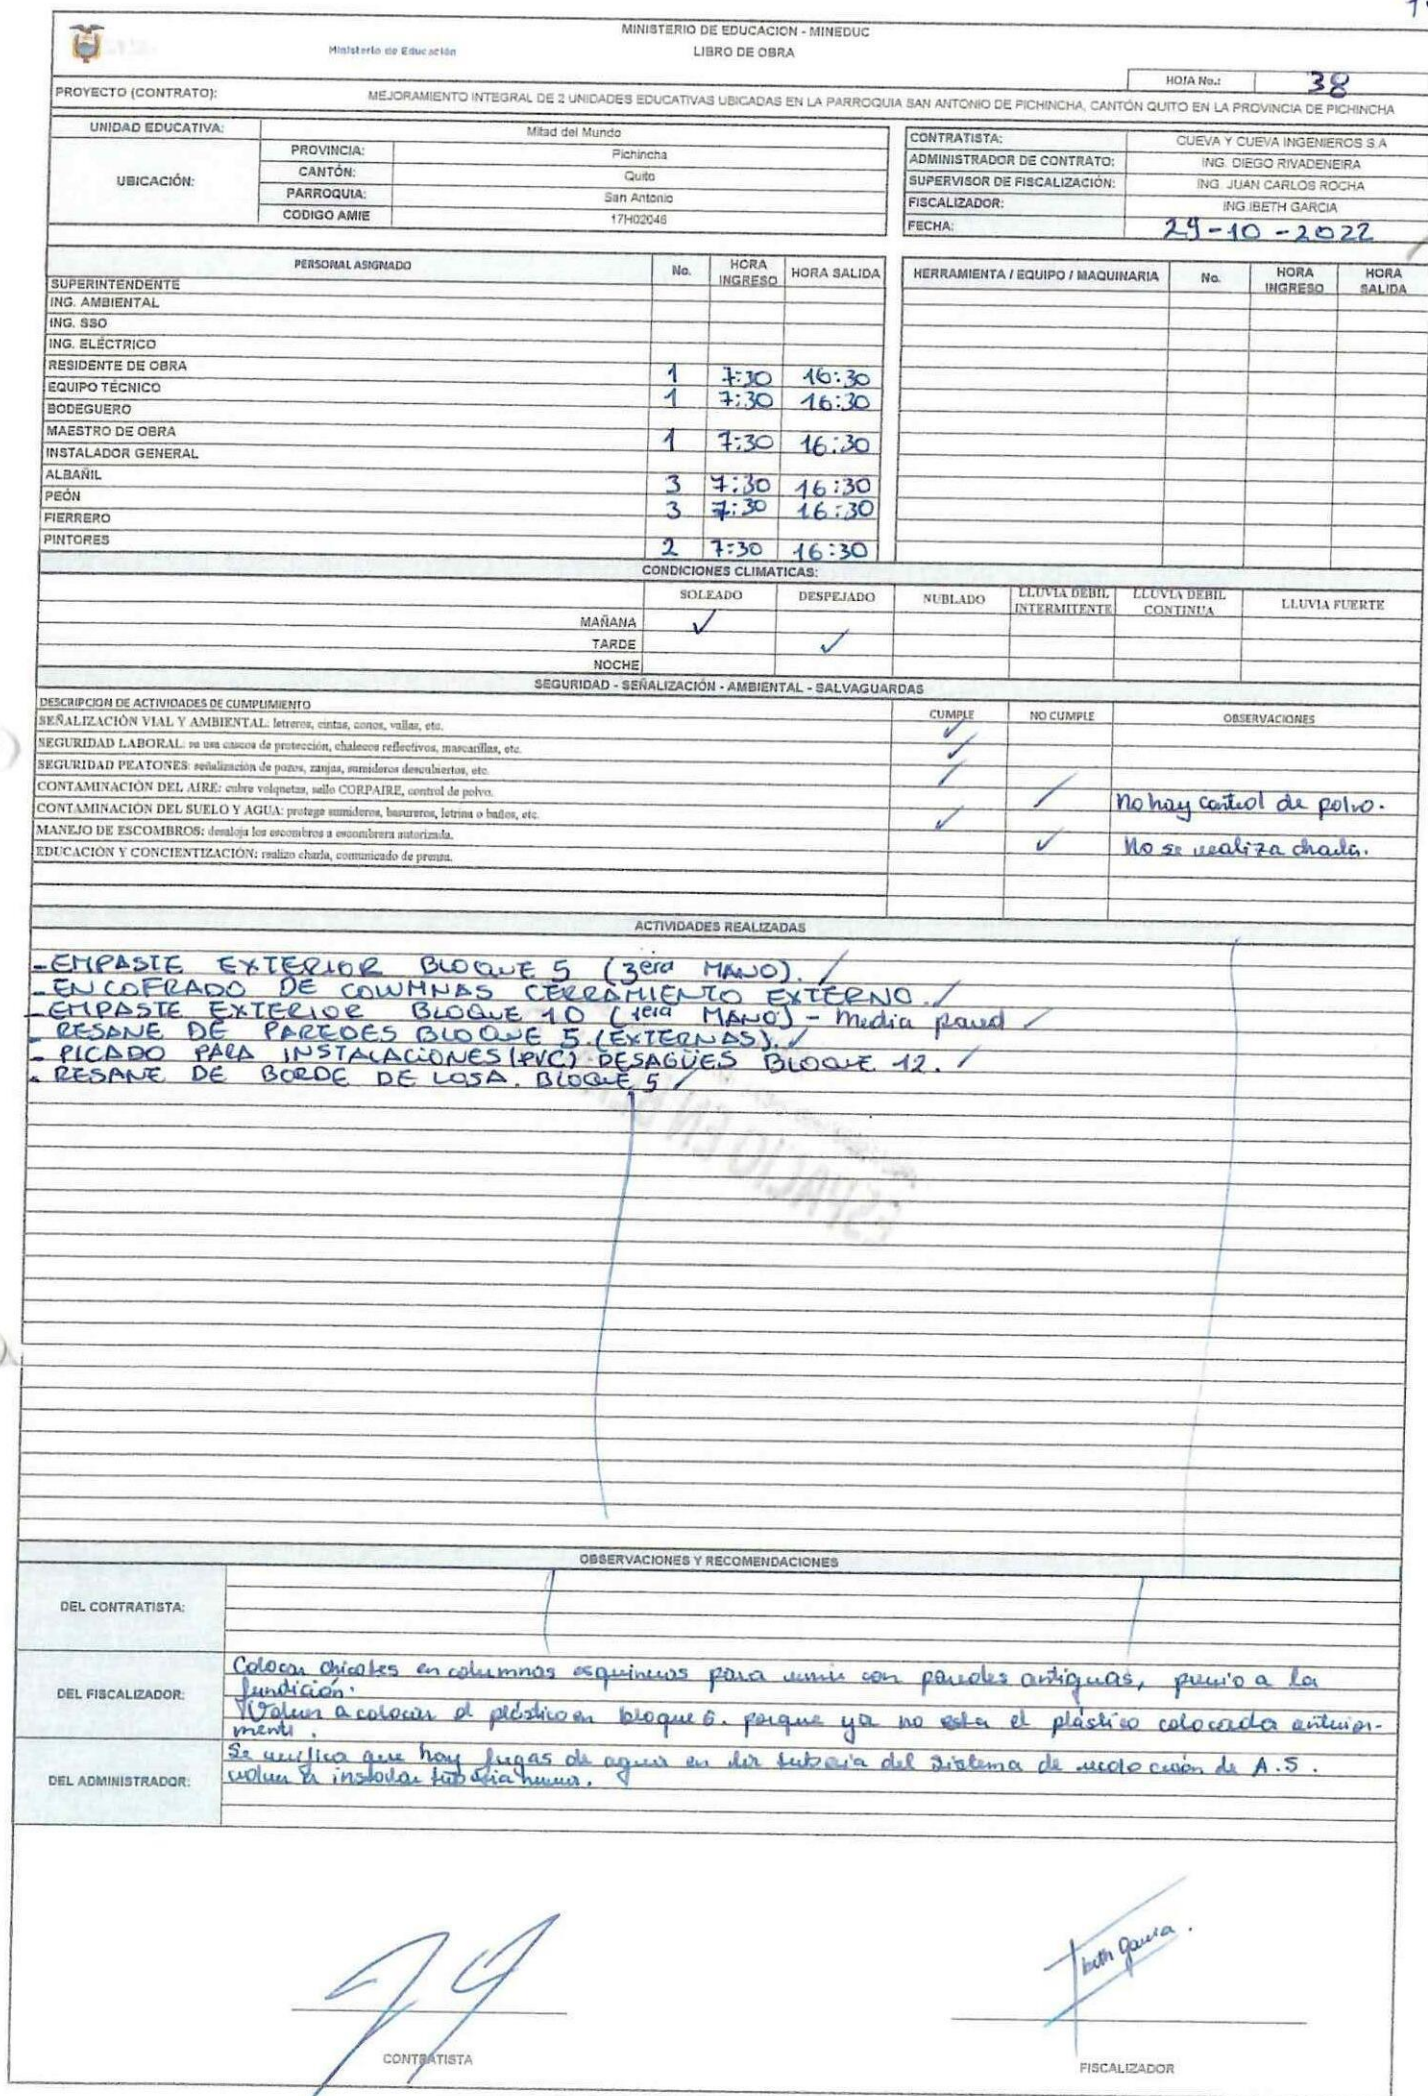 MINISTERIO DE EDUCACION - MINEDUC
Ministerio de Educación
LIBRO DE OBRA
HOJA No.: 38
PROYECTO (CONTRATO): MEJORAMIENTO INTEGRAL DE 2 UNIDADES EDUCATIVAS UBICADAS EN LA PARROQUIA SAN ANTONIO DE PICHINCHA, CANTÓN QUITO EN LA PROVINCIA DE PICHINCHA
UNIDAD EDUCATIVA: Mitad del Mundo
UBICACIÓN:
PROVINCIA: Pichincha
CANTÓN: Quito
PARROQUIA: San Antonio
CODIGO AMIE 17H02046
CONTRATISTA: CUEVA Y CUEVA INGENIEROS S.A
ADMINISTRADOR DE CONTRATO: ING. DIEGO RIVADENEIRA
SUPERVISOR DE FISCALIZACIÓN: ING. JUAN CARLOS ROCHA
FISCALIZADOR: ING IBETH GARCIA
FECHA: 29-10-2022
PERSONAL ASIGNADO No. HORA INGRESO HORA SALIDA
SUPERINTENDENTE
ING. AMBIENTAL
ING. SSO
ING. ELÉCTRICO
RESIDENTE DE OBRA 1 7:30 16:30
EQUIPO TÉCNICO 1 7:30 16:30
BODEGUERO
MAESTRO DE OBRA 1 7:30 16:30
INSTALADOR GENERAL
ALBAÑIL 3 7:30 16:30
PEÓN 3 7:30 16:30
FIERRERO
PINTORES 2 7:30 16:30
HERRAMIENTA / EQUIPO / MAQUINARIA No. HORA INGRESO HORA SALIDA
CONDICIONES CLIMATICAS:
SOLEADO DESPEJADO NUBLADO LLUVIA DEBIL INTERMITENTE LLUVIA DEBIL CONTINUA LLUVIA FUERTE
MAÑANA ✓
TARDE ✓
NOCHE
SEGURIDAD - SEÑALIZACIÓN - AMBIENTAL - SALVAGUARDAS
DESCRIPCION DE ACTIVIDADES DE CUMPLIMIENTO CUMPLE NO CUMPLE OBSERVACIONES
SEÑALIZACIÓN VIAL Y AMBIENTAL: letreros, cintas, conos, vallas, etc. ✓
SEGURIDAD LABORAL: se usa cascos de protección, chalecos reflectivos, mascarillas, etc. ✓
SEGURIDAD PEATONES: señalización de pozos, zanjas, sumideros descubiertos, etc. ✓
CONTAMINACIÓN DEL AIRE: cubre volquetas, sello CORPAIRE, control de polvo. ✓ No hay control de polvo.
CONTAMINACIÓN DEL SUELO Y AGUA: protege sumideros, basureros, letrina o baños, etc. ✓
MANEJO DE ESCOMBROS: desaloja los escombros a escombrera autorizada.
EDUCACIÓN Y CONCIENTIZACIÓN: realizo charla, comunicado de prensa. ✓ No se realiza charla.
ACTIVIDADES REALIZADAS
- EMPASTE EXTERIOR BLOQUE 5 (3era MANO).
- ENCOFRADO DE COLUMNAS CERRAMIENTO EXTERNO.
- EMPASTE EXTERIOR BLOQUE 10 (1era MANO) - Media pared
- RESANE DE PAREDES BLOQUE 5. (EXTERNAS).
- PICADO PARA INSTALACIONES (PVC) DESAGÜES BLOQUE 12.
- RESANE DE BORDE DE LOSA. BLOQUE 5
ESPACIO EN
OBSERVACIONES Y RECOMENDACIONES
DEL CONTRATISTA:
DEL FISCALIZADOR:
Colocar chicotes en columnas esquineras para unir con paredes antiguas, previo a la
fundición.
Volver a colocar el plástico en bloque 6. porque ya no esta el plástico colocado anterior-
mente.
DEL ADMINISTRADOR:
Se verifica que hay fugas de agua en la tubería del sistema de recolección de A.S.
volver a instalar tubería nueva.
CONTRATISTA
Ibeth Garcia.
FISCALIZADOR